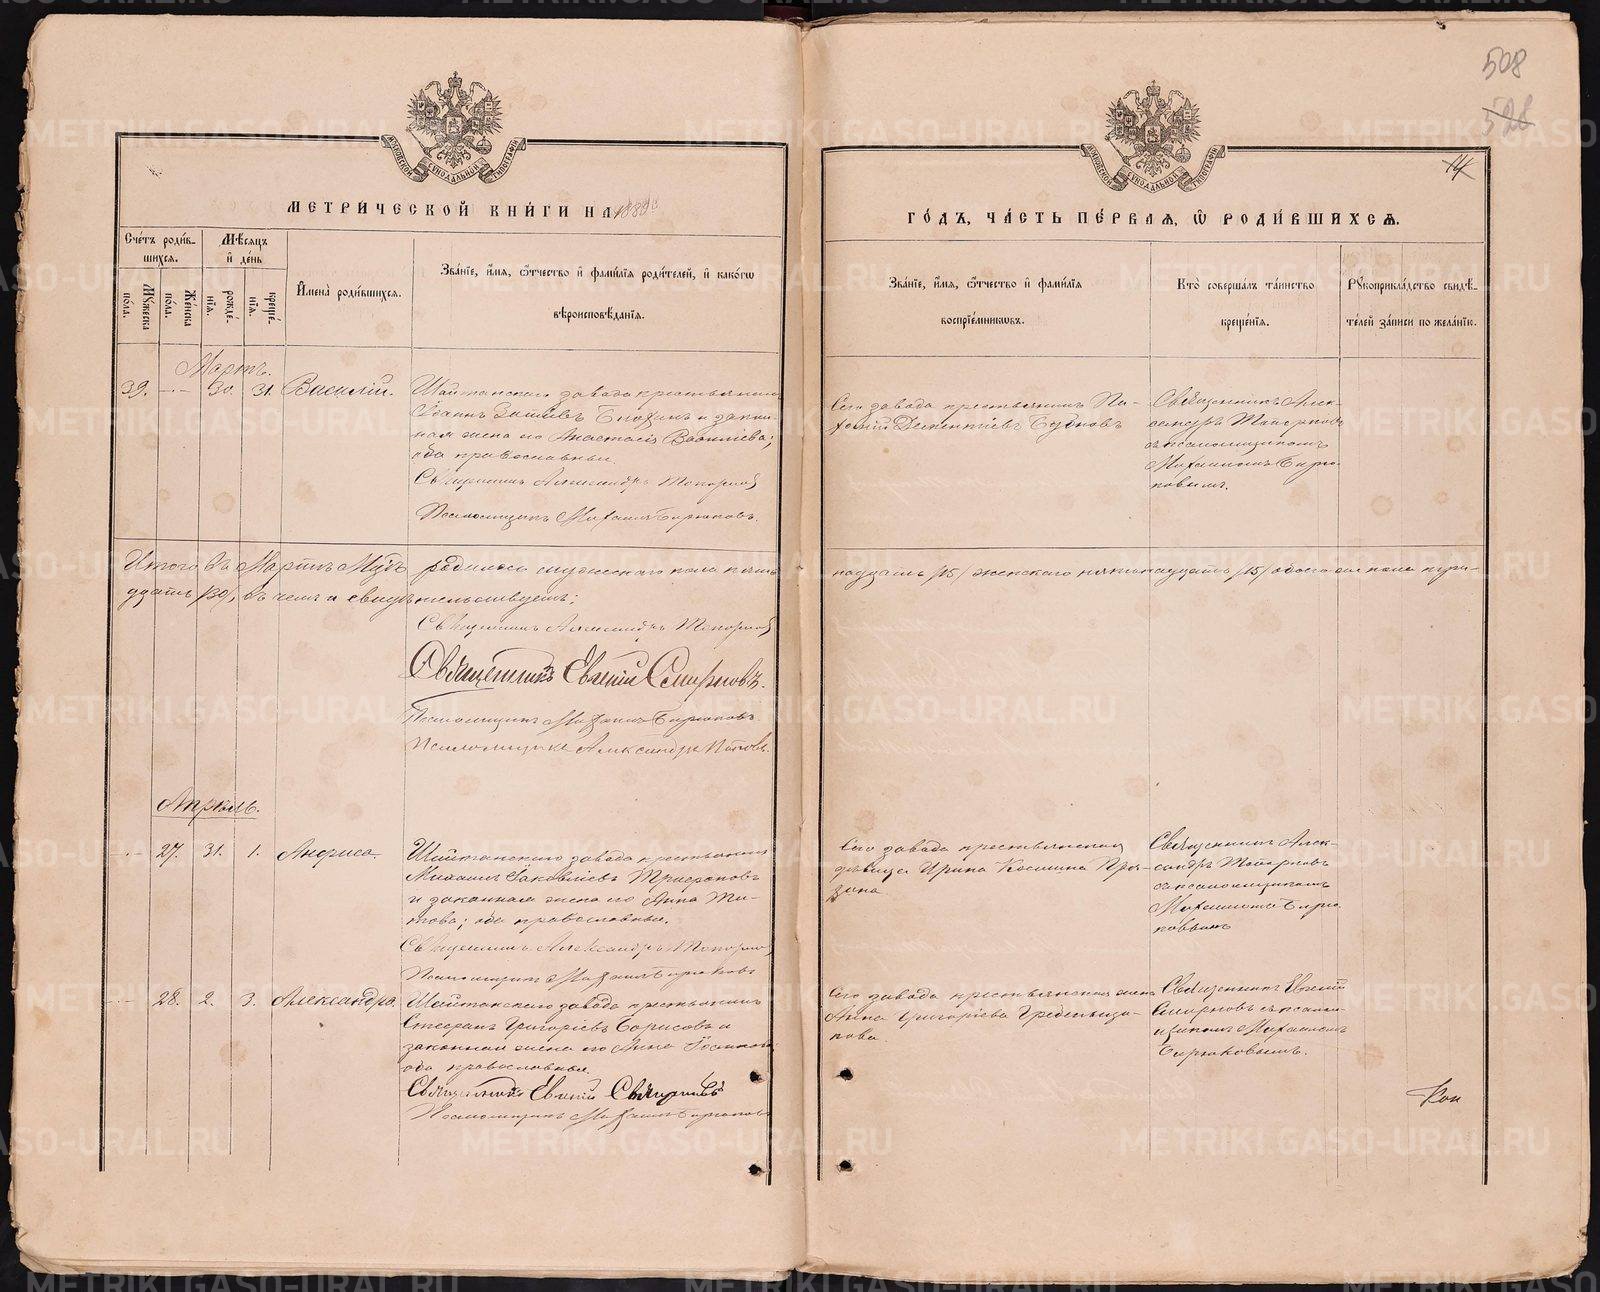 508
528
14
МОСКОВСКОЙ СѴНОДАЛЬНОЙ ТИПОГРАФІИ
МОСКОВСКОЙ СѴНОДАЛЬНОЙ ТИПОГРАФІИ
МЕТРИ́ЧЕСКОЙ КНИ́ГИ НА 1880
ГО́ДЪ, ЧА́СТЬ ПЕ́РВАЯ, Ѡ РОДИ́ВШИХСЯ.
Сче́тъ роди́вшихся.
Мѣ́сяцъ и́ де́нь
Му́жеска по́ла.
Же́нска по́ла.
рожде́нїя.
креще́нїя.
И҆мена̀ роди́вшихся.
Зва́нїе, и҆́мя, ѻ҆́тчество и҆ фами́лїя роди́телей, и҆ како́гѡ
вѣроисповѣ́данїя.
Зва́нїе, и҆́мя, ѻ҆́тчество и҆ фами́лїя
воспрїе́мникѡвъ.
Кто̀ соверша́лъ та́инство
креще́нїя.
Рꙋкоприкла́дство свидѣ́-
телей за́писи по жела́нїю.
Мартъ.
39. 30. 31. Василій.
Шайтанскаго завода крестьянинъ
Іоаннъ и закон-
ная жена его Анастасія
оба православны.
Священникъ Александръ Топорковъ
Псаломщикъ Михаилъ Бирюковъ.
Сего завода крестьянинъ Па-
Бубновъ
Священникъ Алек-
сандръ Топорковъ
съ псаломщикомъ
Михаиломъ Бирю-
ковымъ.
Итого въ Мартѣ Мцѣ родилось мужескаго пола пят-
надцать /15/ женскаго пятнадцать /15/ обоего пола три-
дцать /30/, въ чемъ и свидѣтельствуемъ:
Священникъ Александръ Топорковъ
Священникъ Евгеній Смирновъ.
Псаломщикъ Михаилъ Бирюковъ
Псаломщикъ Александръ Поповъ.
Апрѣль.
27. 31. 1. Анфиса.
Шайтанскаго завода крестьянинъ
Михаилъ Іаковлевъ Трифоновъ
и законная жена его Анна Ти-
това; оба православные.
Священникъ Александръ Топорковъ
Псаломщикъ Михаилъ Бирюковъ
Сего завода крестьянская
дѣвица Ирина Космина
Священникъ Алек-
сандръ Топорковъ
съ псаломщикомъ
Михаиломъ Бирю-
ковымъ
28. 2. 3. Александра.
Шайтанскаго завода крестьянинъ
Стефанъ Григорьевъ Борисовъ и
законная жена его Анна
оба православные.
Священникъ Евгеній Смирновъ
Псаломщикъ Михаилъ Бирюковъ
Сего завода крестьянская жена
Анна Григорьева Гребенщи-
кова.
Священникъ Евгеній
Смирновъ съ псалом-
щикомъ Михаиломъ
Бирюковымъ.
METRIKI.GASO-URAL.RU